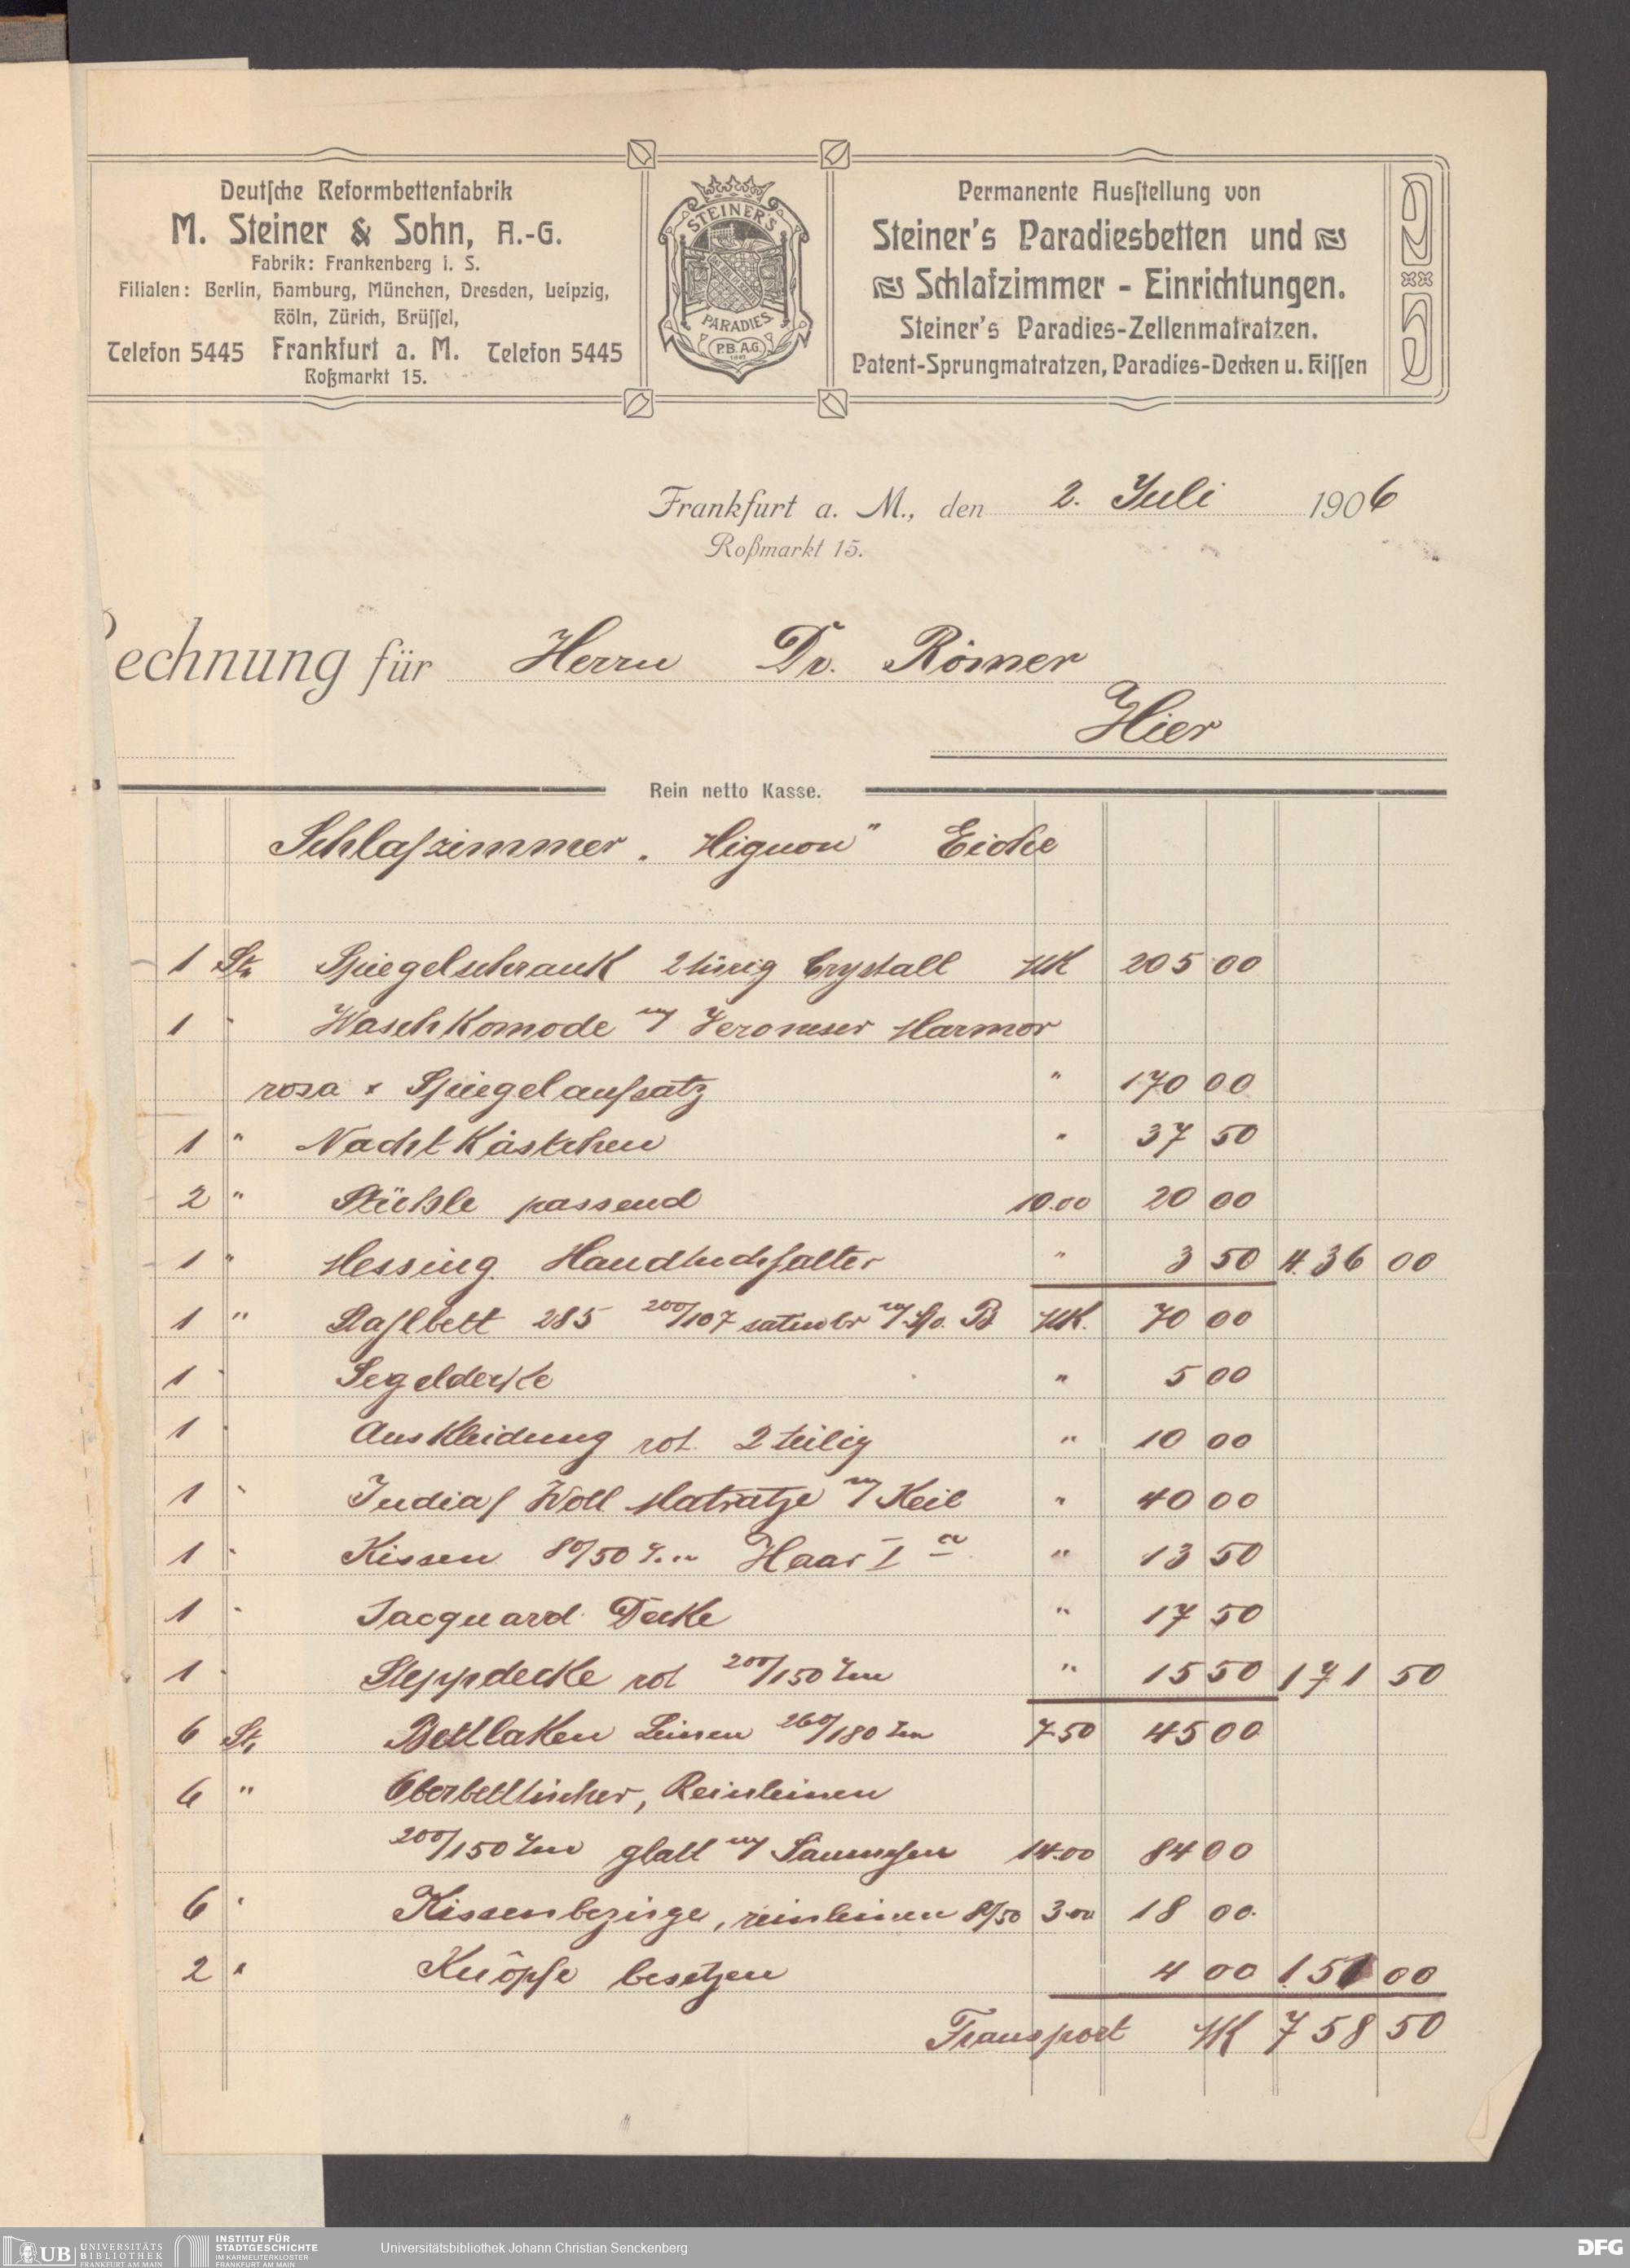 Deutsche Reformbettenfabrik
M. Steiner & Sohn, A.-G.
Fabrik: Frankenberg i. S.
Filialen: Berlin, Hamburg, München, Dresden, Leipzig,
Köln, Zürich, Brüssel,
Telefon 5445 Frankfurt a. M. Telefon 5445
Roßmarkt 15.
STEINER'S
PARADIES
P.B.A.G.
Permanente Ausstellung von
Steiner's Paradiesbetten und
Schlafzimmer - Einrichtungen.
Steiner's Paradies-Zellenmatratzen.
Patent-Sprungmatratzen, Paradies-Decken u. Kissen
Frankfurt a. M., den 2. Juli 1906
Roßmarkt 15.
echnung für Herrn Dr. Römer
Hier
Rein netto Kasse.
Schlafzimmer „Mignon" Eiche
1 St. Spiegelschrank 2türig Crystall MK 205 00
1 " Waschkomode m/ Veroneser Marmor
rosa & Spiegelaufsatz " 170 00
1 " Nachtkästchen " 37 50
2 " Stühle passend 10.00 20 00
1 " Messing Handtuchhalter " 3 50 436 00
1 " Stahlbett 285 200/107 satinbr m/ Sp. B MK. 70 00
1 " Segeldecke " 5 00
1 " Auskleidung rot 2teilig " 10 00
1 " Indiaf Woll Matratze m/ Keil " 40 00
1 " Kissen 80/50 Haar Ia " 13 50
1 " Jacquard Decke " 17 50
1 " Steppdecke rot 200/150 Zm " 15 50 171 50
6 St. Bettlaken Leinen 260/180 Zm 7.50 45 00
6 " Oberbetttücher, Reinleinen
200/150 Zm glatt m/ Saum 14.00 84 00
6 " Kissenbezüge, reinleinen 80/50 3.00 18 00
2 " Knöpfe besetzen 4 00 151 00
Transport MK 758 50
UB UNIVERSITÄTS
BIBLIOTHEK
FRANKFURT AM MAIN
INSTITUT FÜR
STADTGESCHICHTE
IM KARMELITERKLOSTER
FRANKFURT AM MAIN
Universitätsbibliothek Johann Christian Senckenberg
DFG